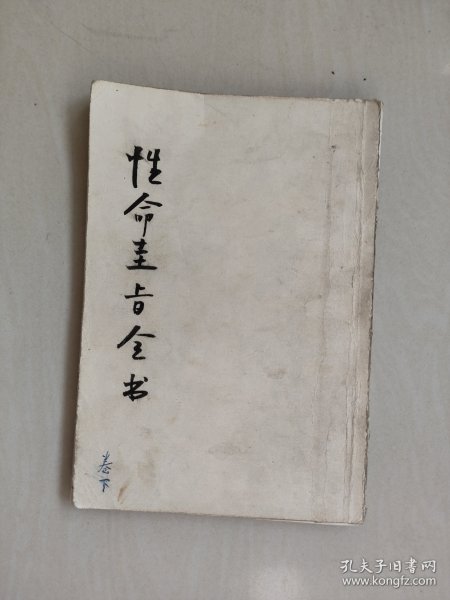 性命圭旨全书
卷下
孔夫子旧书网
www.kongfz.com